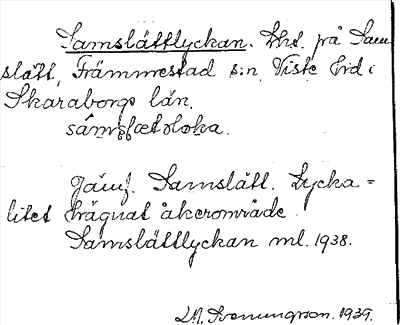 Samslättlyckan. Lht. på Sam
slätt, Främmestad s:n, Viste hd i
Skaraborgs län.
sámslætoloka.
Jämf. Samslätt. Lycka =
litet hägnat åkerområde.
Samslättlyckan ml. 1938.
Svenungson. 1939.